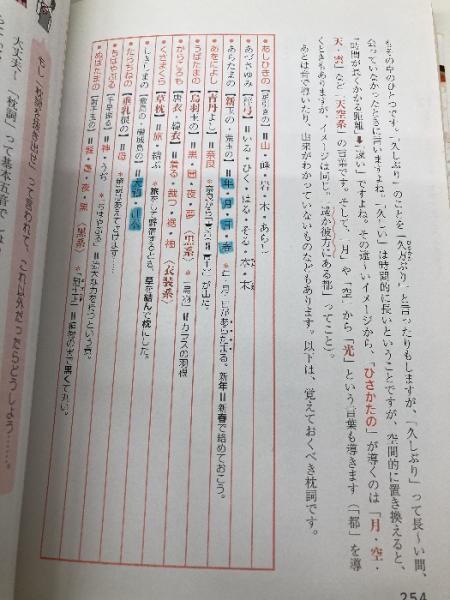 もその中のひとつです。「久しぶり」のことを「久方ぶり」と言ったりもしますが、「久しぶり」って長〜い間、
会っていなかったときに言いますよね。「久しい」は時間的に長いということですが、空間的に置き換えると、
「時間が長くかかる距離➡遠い」ですよね。その遠〜いイメージから、「ひさかたの」が導くのは「月・空・
天・雲」など「天空系」の言葉です。そして、「月」や「空」から「光」という言葉も導きます（「都」を導
くときもありますが、イメージは同じ。「遥か彼方にある都」ってこと）。
あとは音で導いたり、由来がわかっていないものなどもあります。以下は、覚えておくべき枕詞です。
・あしひきの【足引きの】＝山・峰・岩・木・あらし
・あづさゆみ【梓弓】＝いる・ひく・はる・そる・本・末
・あらたまの【新玉の】＝年・月・日・春
・あをによし【青丹よし】＝奈良
・うばたまの【烏羽玉の】＝黒・闇・夜・夢〈黒系〉
・からころも【唐衣・韓衣】＝着る・裁つ・裾・袖〈衣装系〉
・くさまくら【草枕】＝旅・結ぶ ＊旅をして野宿するとき、草を結んで枕にした。
・しきしまの【敷島の・磯城島の】＝大和
・たらちねの【垂乳根の】＝母
・ちはやぶる【千早振る】＝神・うぢ
・ぬばたまの
もし「枕詞を抜き出せ」って言われて、これ以外だったらどうしよう……。
大丈夫〜「枕詞」って基本五音で
254